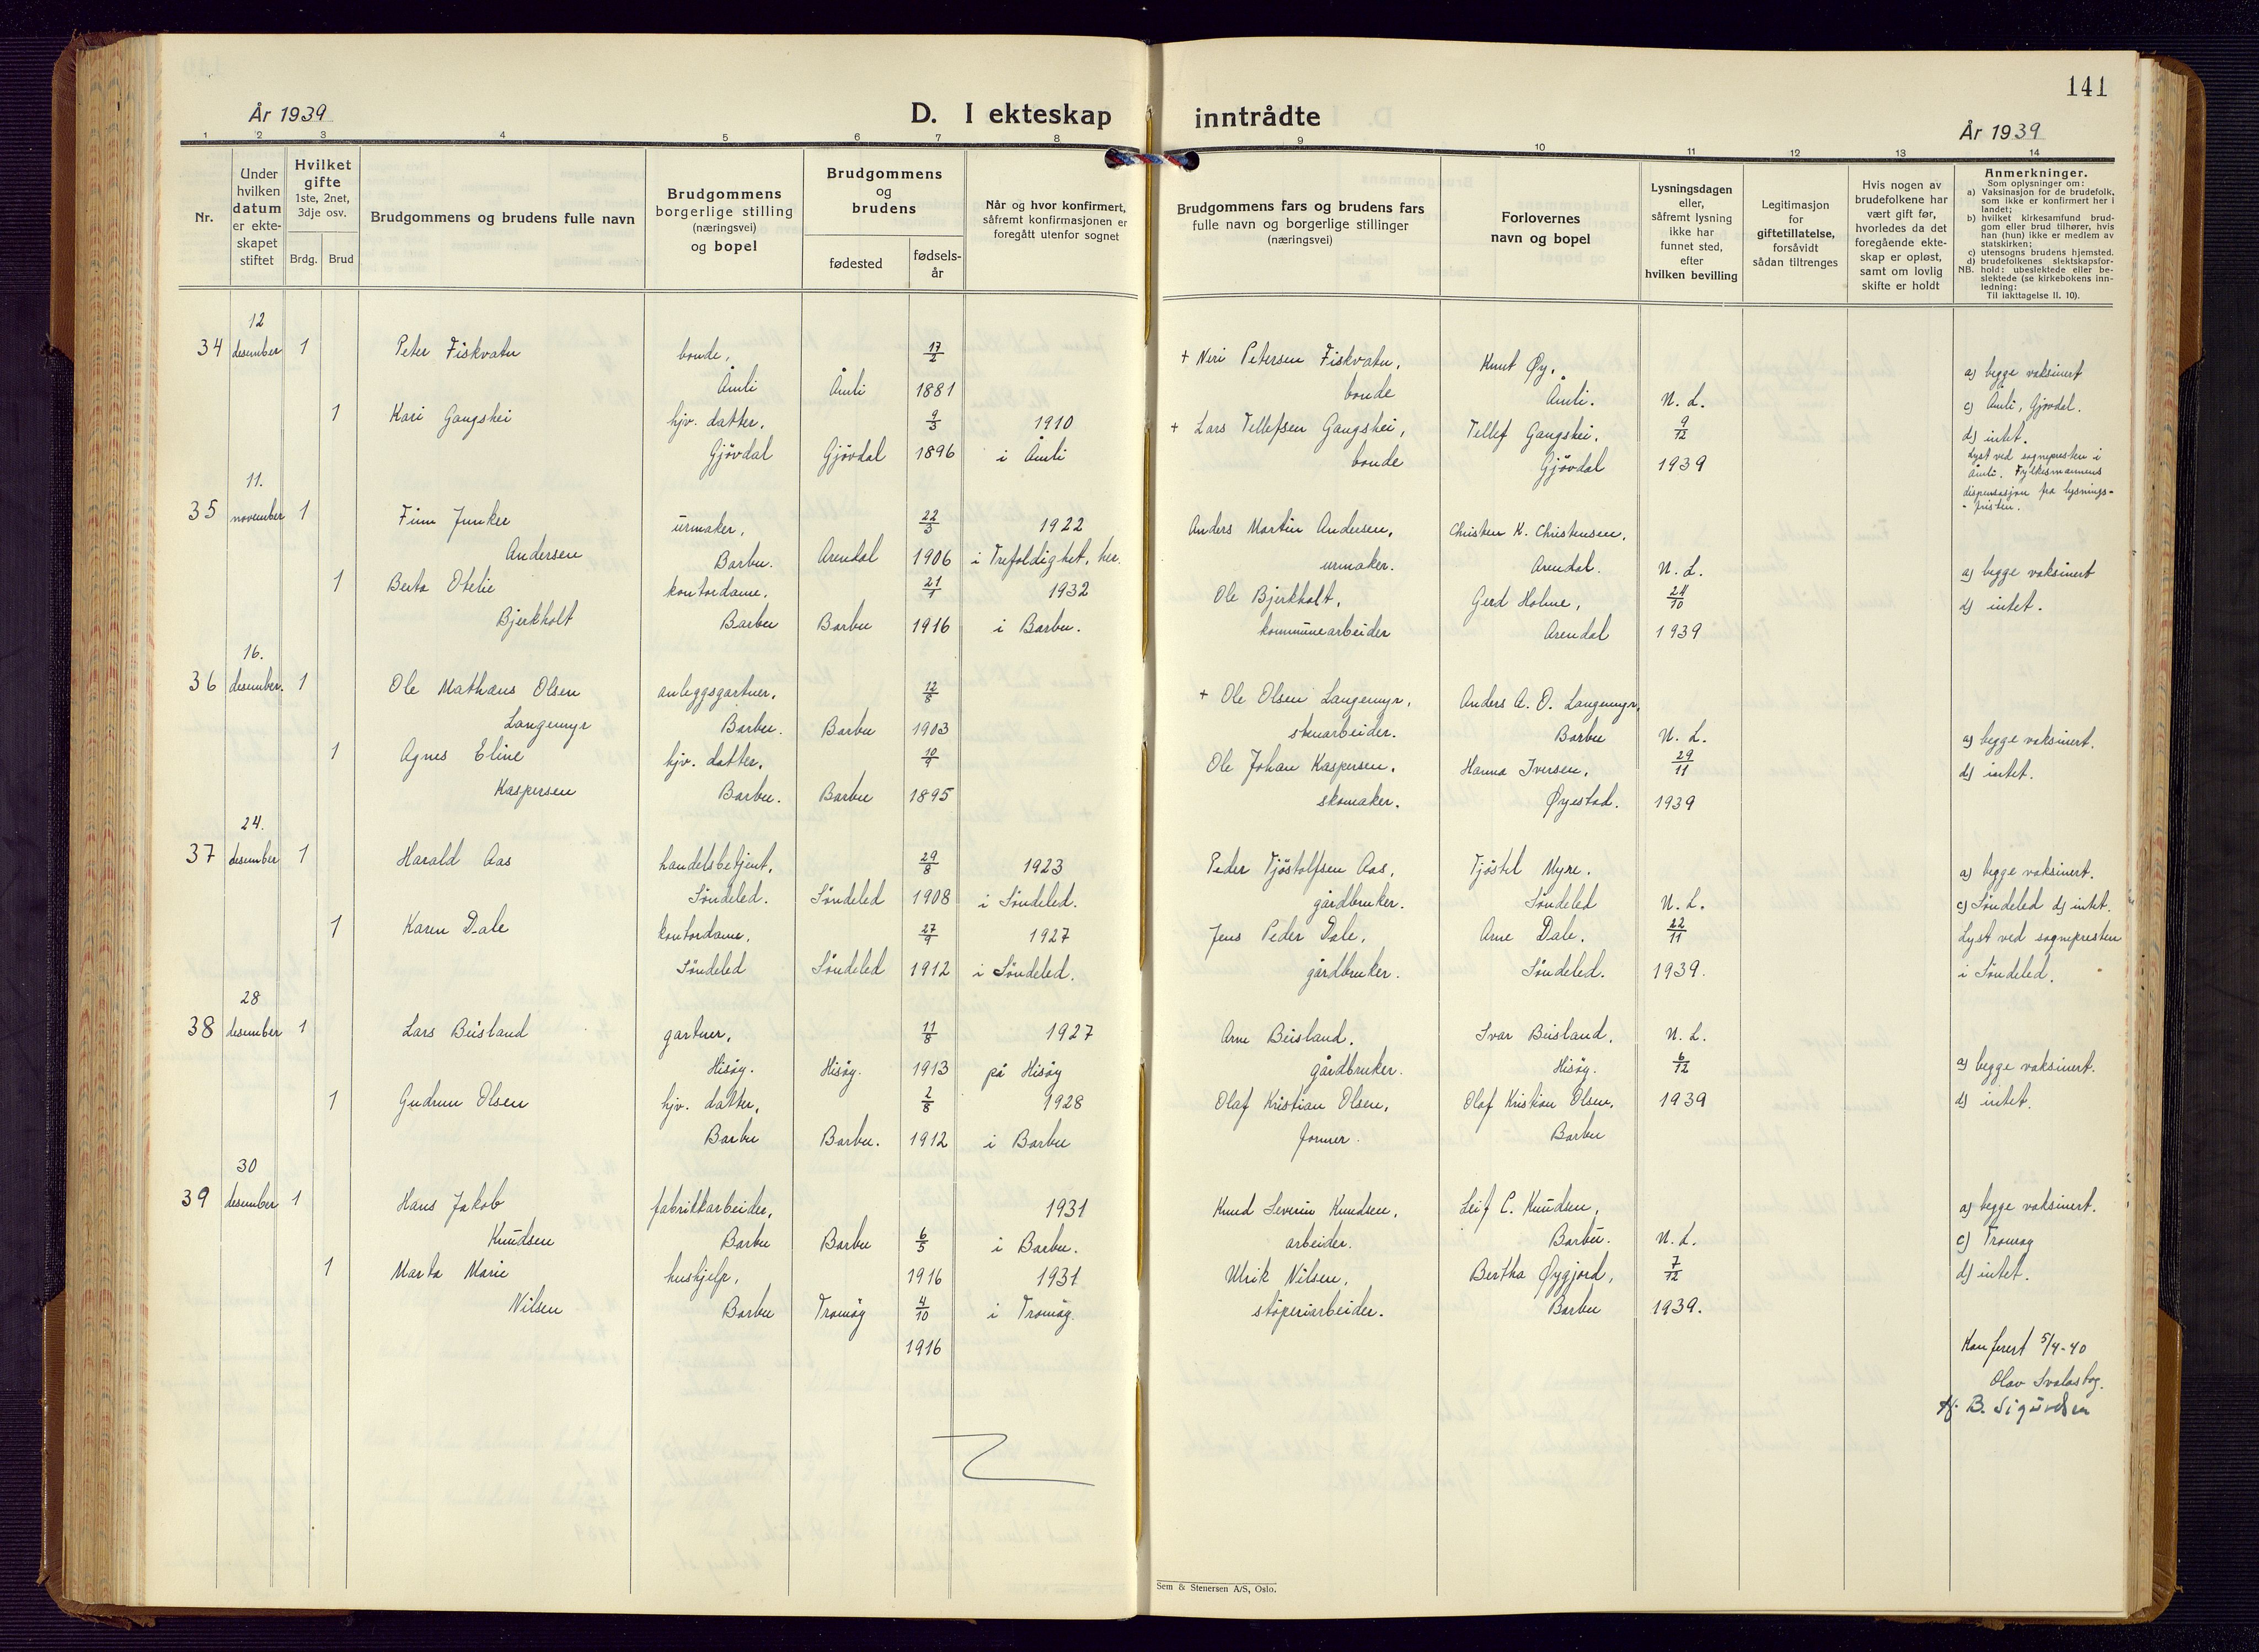 141
År 1939
D. I ekteskap inntrådte
År 1939
1 2 3 4 5 6 7 8 9 10 11 12 13 14
Nr.
Under
hvilken
datum
er ekte-
skapet
stiftet
Hvilket
gifte
1ste, 2net,
3dje osv.
Brdg. Brud
Brudgommens og brudens fulle navn
Brudgommens
borgerlige stilling
(næringsvei)
og bopel
Brudgommens
og
brudens
fødested
fødsels-
år
Når og hvor konfirmert,
såfremt konfirmasjonen er
foregått utenfor sognet
Brudgommens fars og brudens fars
fulle navn og borgerlige stillinger
(næringsvei)
Forlovernes
navn og bopel
Lysningsdagen
eller,
såfremt lysning
ikke har
funnet sted,
efter
hvilken bevilling
Legitimasjon
for
giftetillatelse,
forsåvidt
sådan tiltrenges
Hvis nogen av
brudefolkene har
vært gift før,
hvorledes da det
foregående ekte-
skap er opløst,
samt om lovlig
skifte er holdt
Anmerkninger.
Som oplysninger om:
a) Vaksinasjon for de brudefolk,
som ikke er konfirmert her i
landet;
b) hvilket kirkesamfund brud-
gom eller brud tilhører, hvis
han (hun) ikke er medlem av
statskirken;
c) utensogns brudens hjemsted.
d) brudefolkenes slektskapsfor-
NB. hold: ubeslektede eller be-
slektede (se kirkebokens inn-
ledning:
Til iakttagelse II. 10).
12
34 desember 1 Peter Fiskvatn bonde, 17/2 + Neri Petersen Fiskvatn, Knut Øy,
Åmli Åmli 1881 bonde Åmli. N. L.
1 Kari Gangshei hjv. datter, 9/3 1910 + Lars Tellefsen Gangshei, Tellef Gangshei, 9/12
Gjövdal Gjövdal 1896 i Åmli bonde Gjövdal 1939
a) begge vaksinert
c) Åmli, Gjövdal.
d) intet.
Lyst ved sognepresten i
Åmli. Fylkesmannens
dispensasjon fra lysnings-
- fristen.
11.
35 november 1 Finn Junker urmaker, 22/3 1922 Anders Martin Andersen, Christen K. Christensen,
Andersen Barbu. Arendal 1906 i Trefoldighet, her. urmaker. Arendal. N. L. a) begge vaksinert
1 Berta Otelie kontordame, 21/1 1932 Ole Bjerkholt, Gerd Holme, 24/10 d) intet.
Bjerkholt Barbu Barbu 1916 i Barbu. kommunearbeider Arendal 1939
16.
36 desember. 1 Ole Mathæus Olsen anleggsgartner, 12/8 + Ole Olsen Langemyr, Anders A. O. Langemyr,
Langemyr Barbu. Barbu 1903 stenarbeider. Barbu N. L. a) begge vaksinert.
1 Agnes Eline hjv. datter, 10/9 Ole Johan Kaspersen, Hanna Iversen, 29/11 d) intet.
Kaspersen Barbu. Barbu 1895 skomaker. Øyestad. 1939
24.
37 desember 1 Harald Aas handelsbetjent, 29/8 1923 Peder Tjöstolfsen Aas, Tjöstel Myre. a) begge vaksinert.
Söndeled. Söndeled 1908 i Söndeled. gårdbruker. Söndeled N. L. c) Söndeled d) intet.
1 Karen Dale kontordame, 27/9 1927 Jens Peder Dale, Arne Dale, 22/11 Lyst ved sognepresten
Söndeled Söndeled 1912 i Söndeled. gårdbruker. Söndeled. 1939. i Söndeled.
28
38 desember 1 Lars Beisland gartner, 11/8 1927 Arne Beisland, Ivar Beisland, N. L.
Hisöy. Hisöy. 1913 på Hisöy gårdbruker. Hisöy. 6/12 a) begge vaksinert.
1 Gudrun Olsen hjv. datter, 2/8 1928 Olaf Kristian Olsen, Olaf Kristian Olsen, 1939 d) intet.
Barbu Barbu. 1912 i Barbu former. Barbu
30
39 desember 1 Hans Jakob fabrikkarbeider, 1931 Knud Severin Knudsen, Leif C. Knudsen, a) begge vaksinert.
Knudsen Barbu Barbu 6/5 i Barbu. arbeider. Barbu. N. L. c) Tromöy
1 Marta Marie hushjelp, 1916 1931 Ulrik Nilsen, Bertha Øygjord, 7/12 d) intet.
Nilsen Barbu Tromöy 4/10 i Tromöy. stöperiarbeider. Barbu 1939.
1916
Konferert 5/4-40
Olav
B. Sigurdsen
Sem & Stenersen A/S, Oslo.